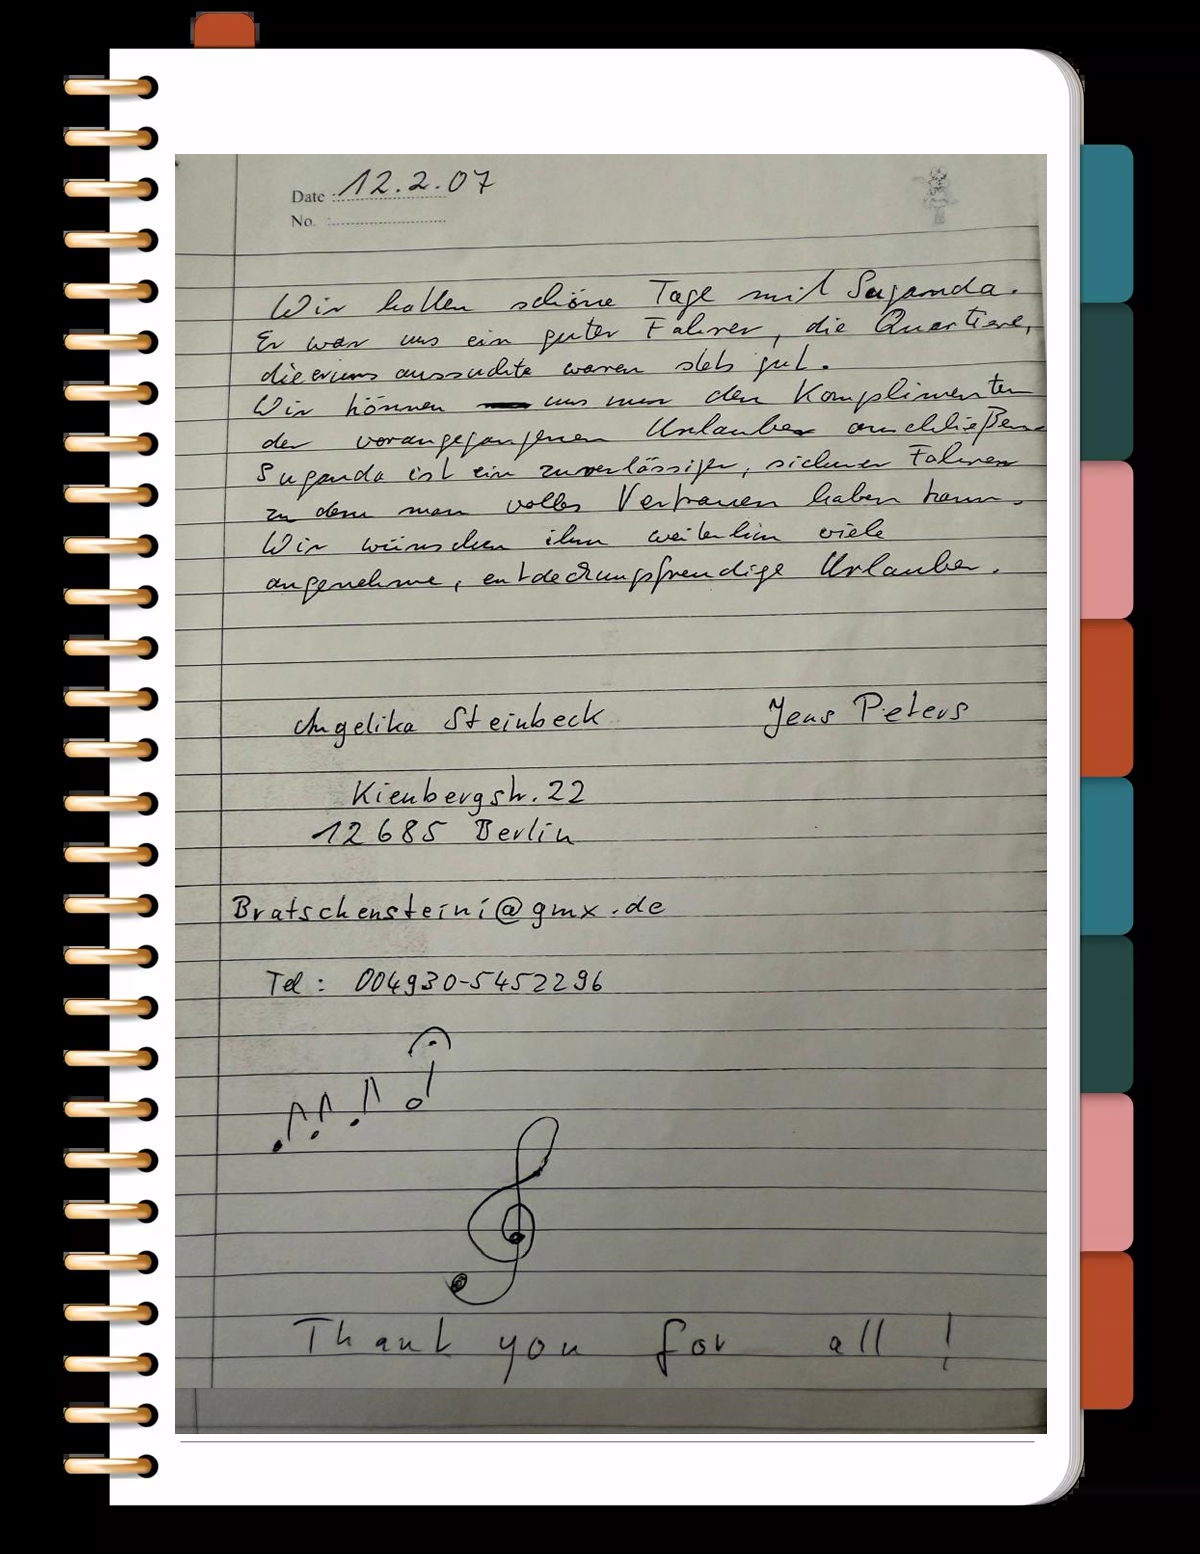 Date : 12.2.07
No. :
Wir hatten schöne Tage mit Suganda.
Er war uns ein guter Fahrer, die Quartiere,
die er uns aussuchte waren stets gut.
Wir können uns nur den Komplimenten
der vorangegangenen Urlauber anschließen
Suganda ist ein zuverlässiger, sicherer Fahrer
zu dem man volles Vertrauen haben kann.
Wir wünschen ihm weiterhin viele
angenehme, entdeckungsfreudige Urlauber.
Angelika Steinbeck Jens Peters
Kienbergstr. 22
12685 Berlin
Bratschensteini@gmx.de
Tel : 004930-5452296
Thank you for all !